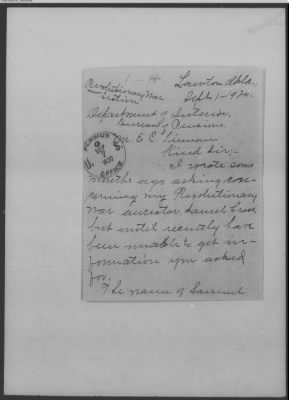 Lawton Okla.,
Sept. 1 - 1920.
Revolutionary War
Section
Department of Interior,
Bureau of Pensions
Mr. E. C.
Kind Sir;-
I wrote some
months ago asking con-
cerning my Revolutionary
War ancestor, Samuel
but until recently have
been unable to get in-
formation you asked
for.
The name of Samuel
PENSION
OFFICE
1920